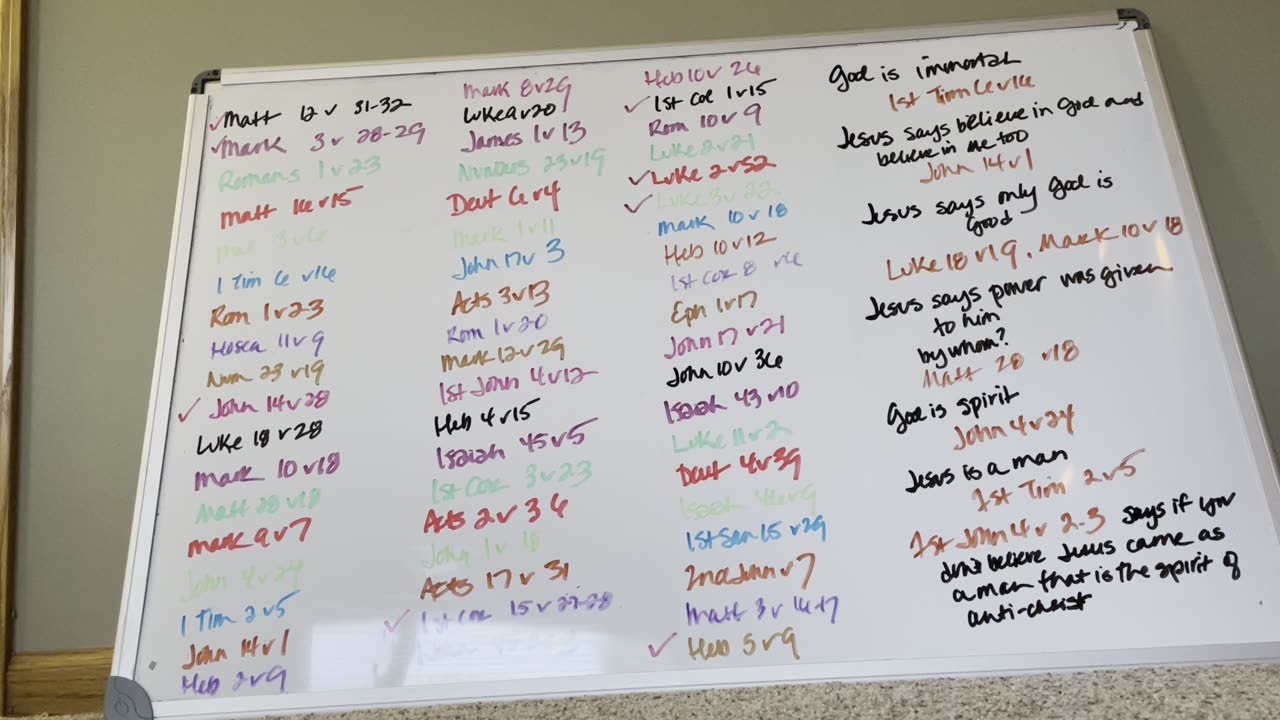 Matt 12 v 31-32
Mark 3 v 28-29
Romans 1 v 23
Matt 16 v 15
Mal 3 v 6
1 Tim 6 v 16
Rom 1 v 23
Hosea 11 v 9
Num 23 v 19
John 14 v 28
Luke 18 v 28
Mark 10 v 18
Matt 28 v 18
Mark 9 v 7
John 4 v 24
1 Tim 2 v 5
John 14 v 1
Heb 2 v 9
Mark 8 v 29
Luke 9 v 20
James 1 v 13
Numbers 23 v 19
Deut 6 v 4
Mark 1 v 11
John 17 v 3
Acts 3 v 13
Rom 1 v 20
Mark 12 v 29
1st John 4 v 12
Heb 4 v 15
Isaiah 45 v 5
1st Cor 3 v 23
Acts 2 v 36
John 1 v 18
Acts 17 v 31
1st Cor 15 v 27-28
Heb 10 v 26
1st Col 1 v 15
Rom 10 v 9
Luke 2 v 21
Luke 2 v 52
Luke 3 v 22
Mark 10 v 18
Heb 10 v 12
1st Cor 8 v 6
Eph 1 v 17
John 17 v 21
John 10 v 36
Isaiah 43 v 10
Luke 11 v 2
Deut 4 v 39
Isaiah 46 v 9
1st Sam 15 v 29
2nd John v 7
Matt 3 v 16+7
Heb 5 v 9
God is immortal
1st Tim 6 v 16
Jesus says believe in God and
believe in me too
John 14 v 1
Jesus says only God is
Good
Luke 18 v 19, Mark 10 v 18
Jesus says power was given
to him
by whom?
Matt 28 v 18
God is spirit
John 4 v 24
Jesus is a man
1st Tim 2 v 5
1st John 4 v 2-3 says if you
don't believe Jesus came as
a man that is the spirit of
anti-christ